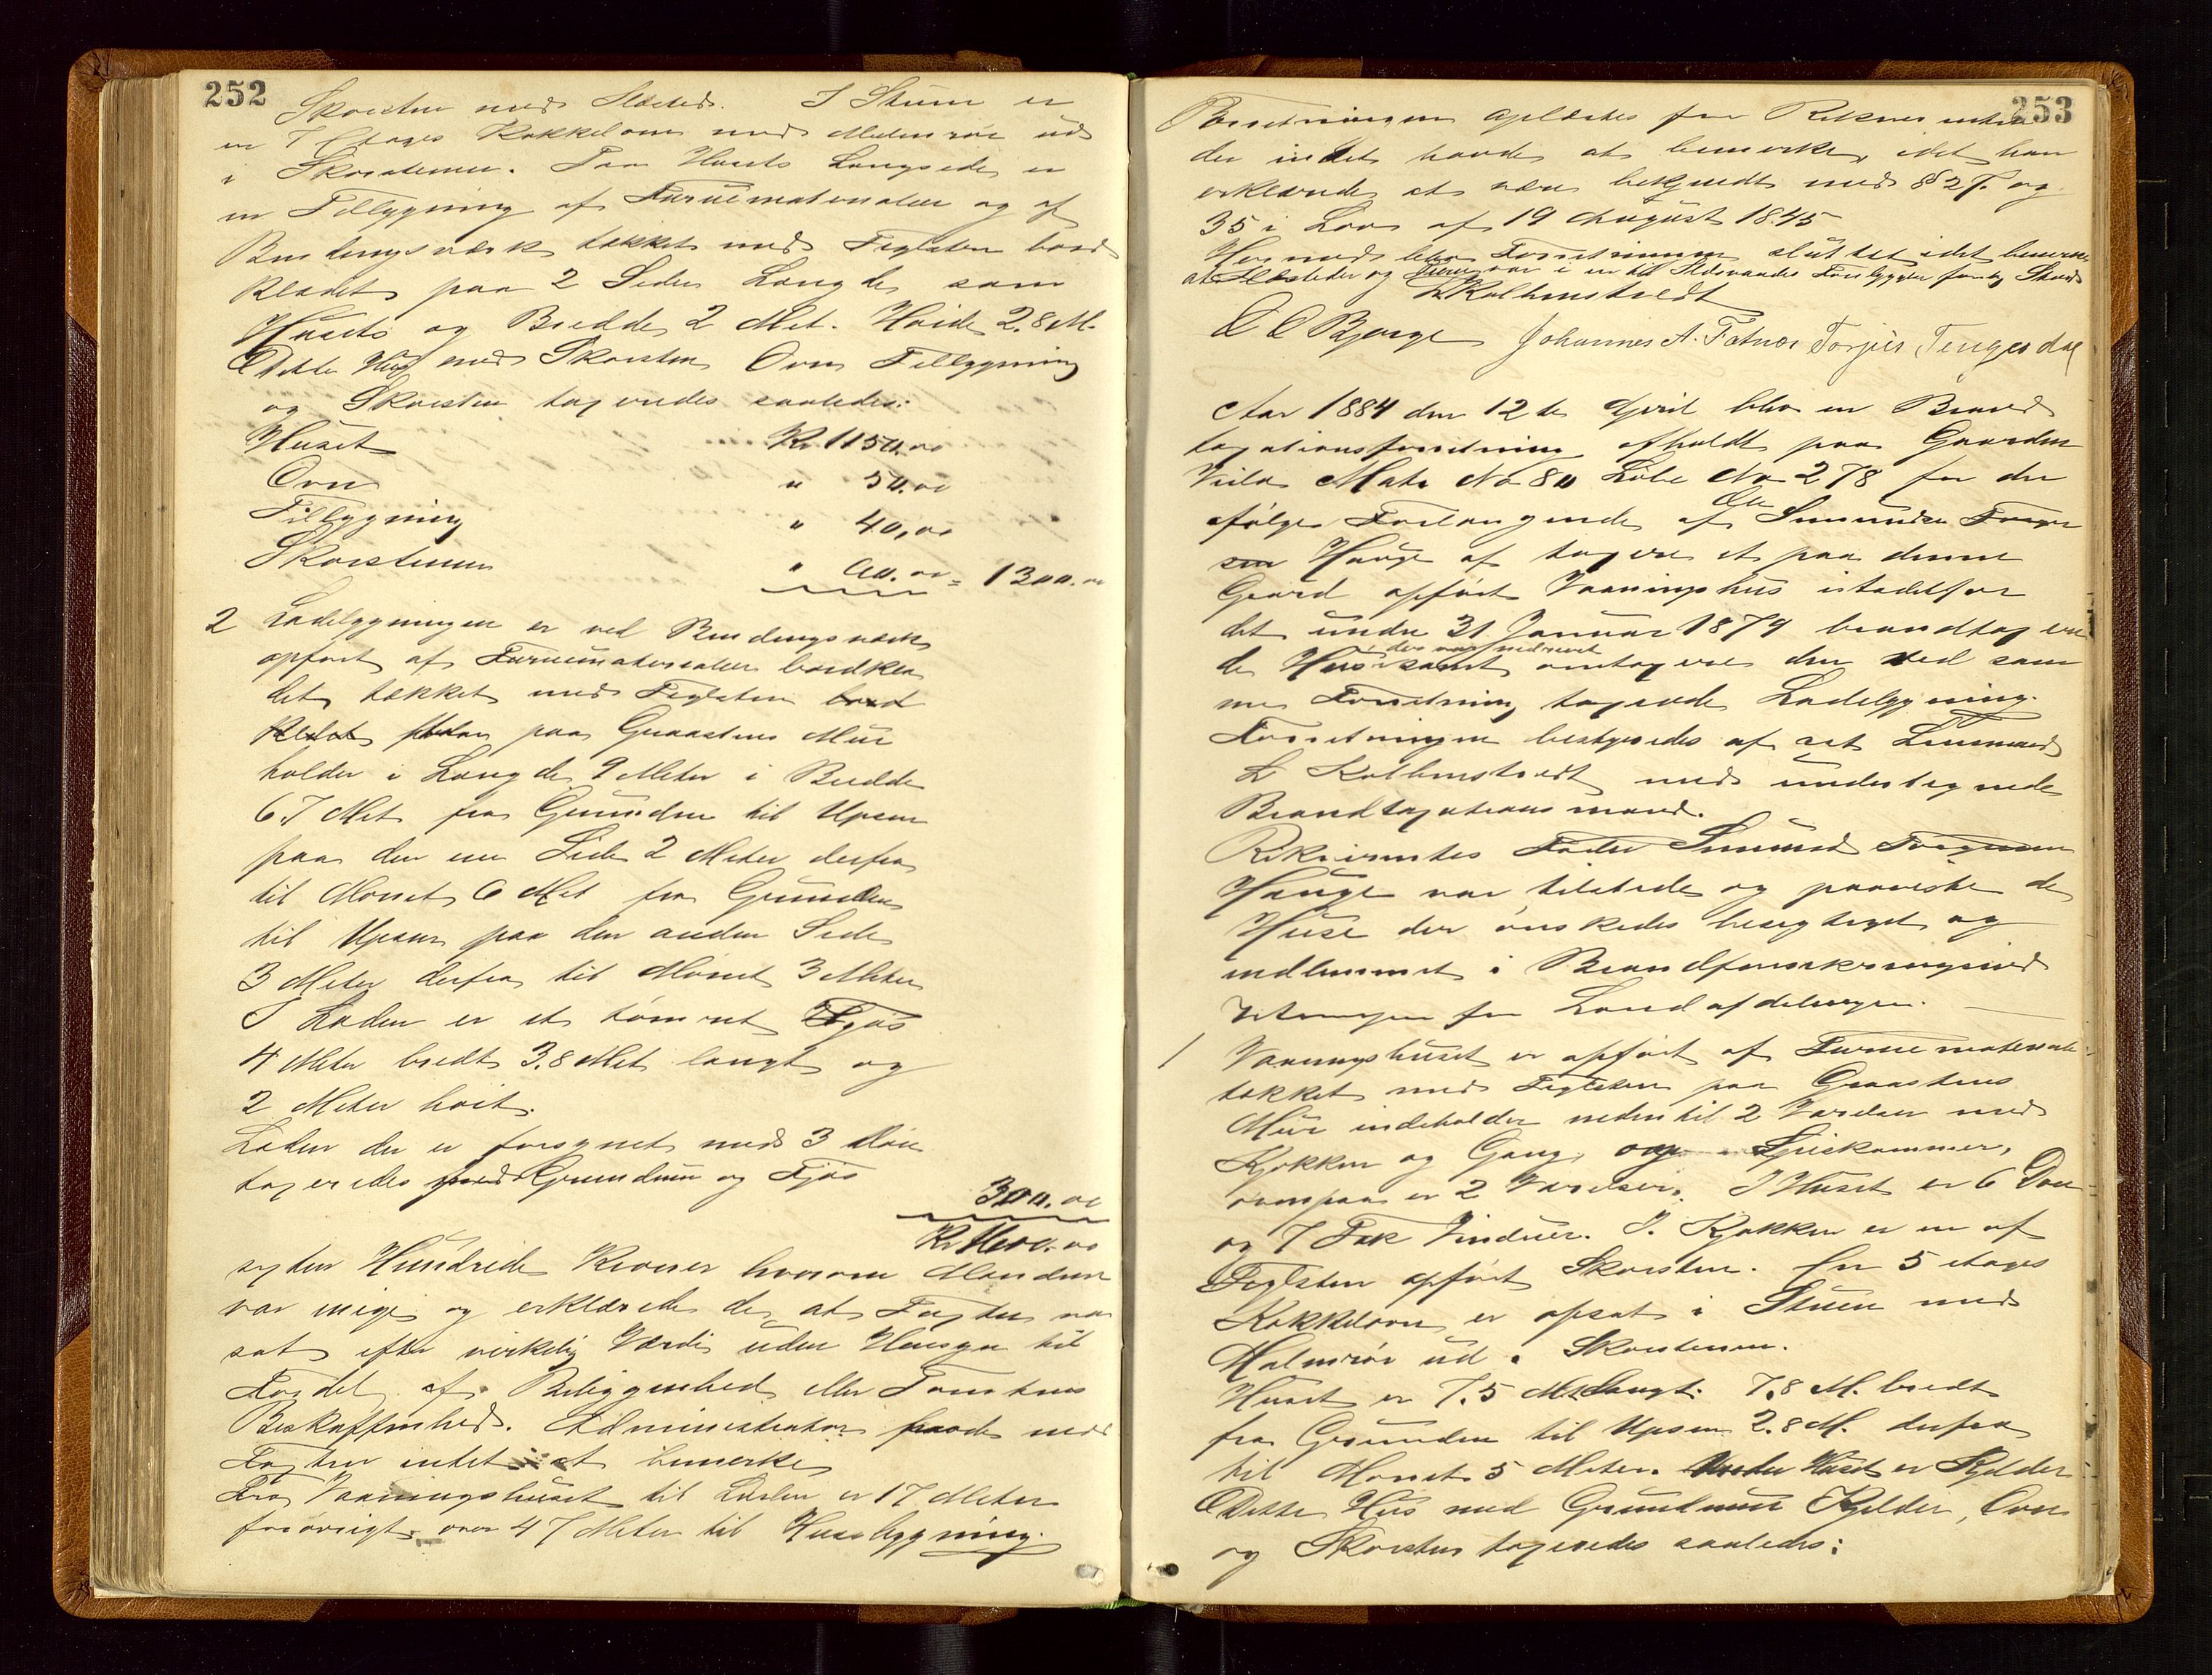 252
Skorsten med Ildsted. I Stuen er
en 7 Etages Kakkelovn med Malmrör ud
i Skorstenen. Paa Husets Langside er
en Tilbygning af Furuematerialer og af
Bindingsværk tækket med Teglsten bord
klædt paa 2 Sider Længde som
Husets og Bredde 2 Met. Höide 2.8 M.
Dette Hus med Skorsten Ovn Tilbygning
og Skorsten taxeredes saaledes:
Huset Kr. 1150.00
Ovn " 50.00
Tilbygning " 40,00
Skorstenen " 60.00 = 1300.00
2 Ladebygningen er ved Bindingsværk
opført af Furuematerialer bordklæ
det tækket med Teglsten bord
klædt paa Graastens Mur
holder i Længde 9 Meter i Bredde
6.7 Met fra Grunden til Upsen
paa den ene Side 2 Meter derfra
til Mönet 6 Met fra Grunden
til Upsen paa den anden Side
3 Meter derfra til Mönet 3 Meter
I Laden er et tömret Fjös
4 Meter bredt 3.8 Met langt og
2 Meter höit.
Laden der er forsynet med 3 Döre
taxeredes med Grundmur og Fjös
300.00
Kr. 1600.00
sexten Hundrede Kroner hvorom Mændene
var enige og erklærede de, at Taxten var
sat efter virkelig Værdi uden Hensyn til
Fordel af Beliggenhed eller Tomtens
Beskaffenhed. Administrator havde ved
Taxten intet at bemerke
Fra Vaaningshuset til Laden er 17 Meter
forövrigt over 47 Meter til Husebygning.
253
Forretningen oplæstes for Rekvirenten
der intet havde at bemerke, idet han
erklærede at være bekjendt med § 27. og
35 i Lov af 19 August 1845
Hermed blev Forretningen sluttet idet bemerkes
at Ildsteder og Piber var i en til Ildsvaades Forebyggelse forsvarlig Stand
L Kolbenstvedt
O O Bjerge Johannes A. Fatnæs Torjus Tengesdal
Aar 1884 den 12te April blev en Brand
taxationsforretning afholdt paa Gaarden
Matr No 80 Löbe No 278 for der
efölge Forlangende af Ole Simundsen
sen Hauge af taxere et paa denne
Gaard opfört Vaaningshus istedetfor
det under 31 Januar 1879 brandtaxere
de Hus der var nedrevet samt omtaxere den ved sam
me Forretning taxerede Ladebygning.
Forretningen bestyredes af cst Lensmand
L Kolbenstvedt med undertegnede
Brandtaxationsmænd.
Rekvirentes Fader Simund
Hauge var tilstede og paaviste de
Huse der önskedes besigtiget og
indlemmet i Brandforsikringsind
retningen for Landafdelingen.
1 Vaaningshuset er opfört af Furuematerial
tækket med Teglsten paa Graastens
Mur indeholder nedentil 2 Værelser med
Kjökken og Gang, og Spiskammer,
ovenpaa er 2 Værelser. I Huset er 6 Döre
og 7 Fak Vinduer. I Kjökken er en af
Teglsten opfört Skorsten. En 5 etages
Kakkelovn er opsat i Stuen med
Malmrör ud i Skorstenen.
Huset er 7.5 Met langt. 7.8 M. bredt
fra Grunden til Upsen 2.8 M. derfra
til Mönet 5 Meter. Under Huset er Kjelder
Dette Hus med Grundmur Kjelder, Ovn
og Skorsten taxeredes saaledes: